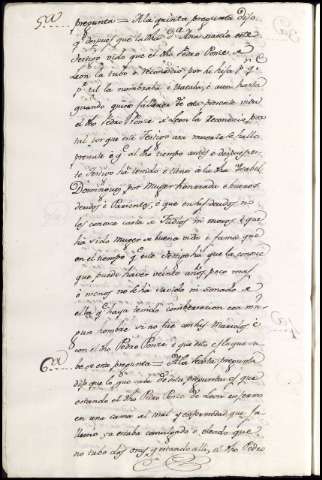 5ª pregunta = A la quinta pregunta dijo
qº despues que la dha Dª Ana nacio este
testigo vido que el dho Pedro Ponze de
Leon la tubo e por su hija pº qº
por tal la nombraba e hasta
quando quiso fallecer de esta presente vida
el dho Pedro Ponze de Leon la por
tal por que este testigo a su muerte se hallo
presente e qº al dho tiempo antes e despues este
testigo ha tenido e tiene a la dha Isabel
Dominguez por Muger honrrada e buenos
deudos e Parientes, e que en sus deudos no
les conoce casta de Judios ni moros, e que
ha sido muger de buena vida e fama e que
en el tiempo qº este testigo ha que la conoce
que puede haver veinte años poco mas
o menos no le ha savido ni sonado de
ella qº haya tenido combersacion con nin
gun hombre si no fue con sus Maridos e
con el dho Pedro Ponze, e que esto es lo que sa
be de esta pregunta =
6ª A la sexta pregunta
dijo que lo que save de esta pregunta es que
estando el dho Pedro Ponze de Leon enfermo
en una cama del mal y enfermedad que fa
llecio, ya estaba comulgado e oleado que
no tubo dos oras, y estando alli, el dho Pedro